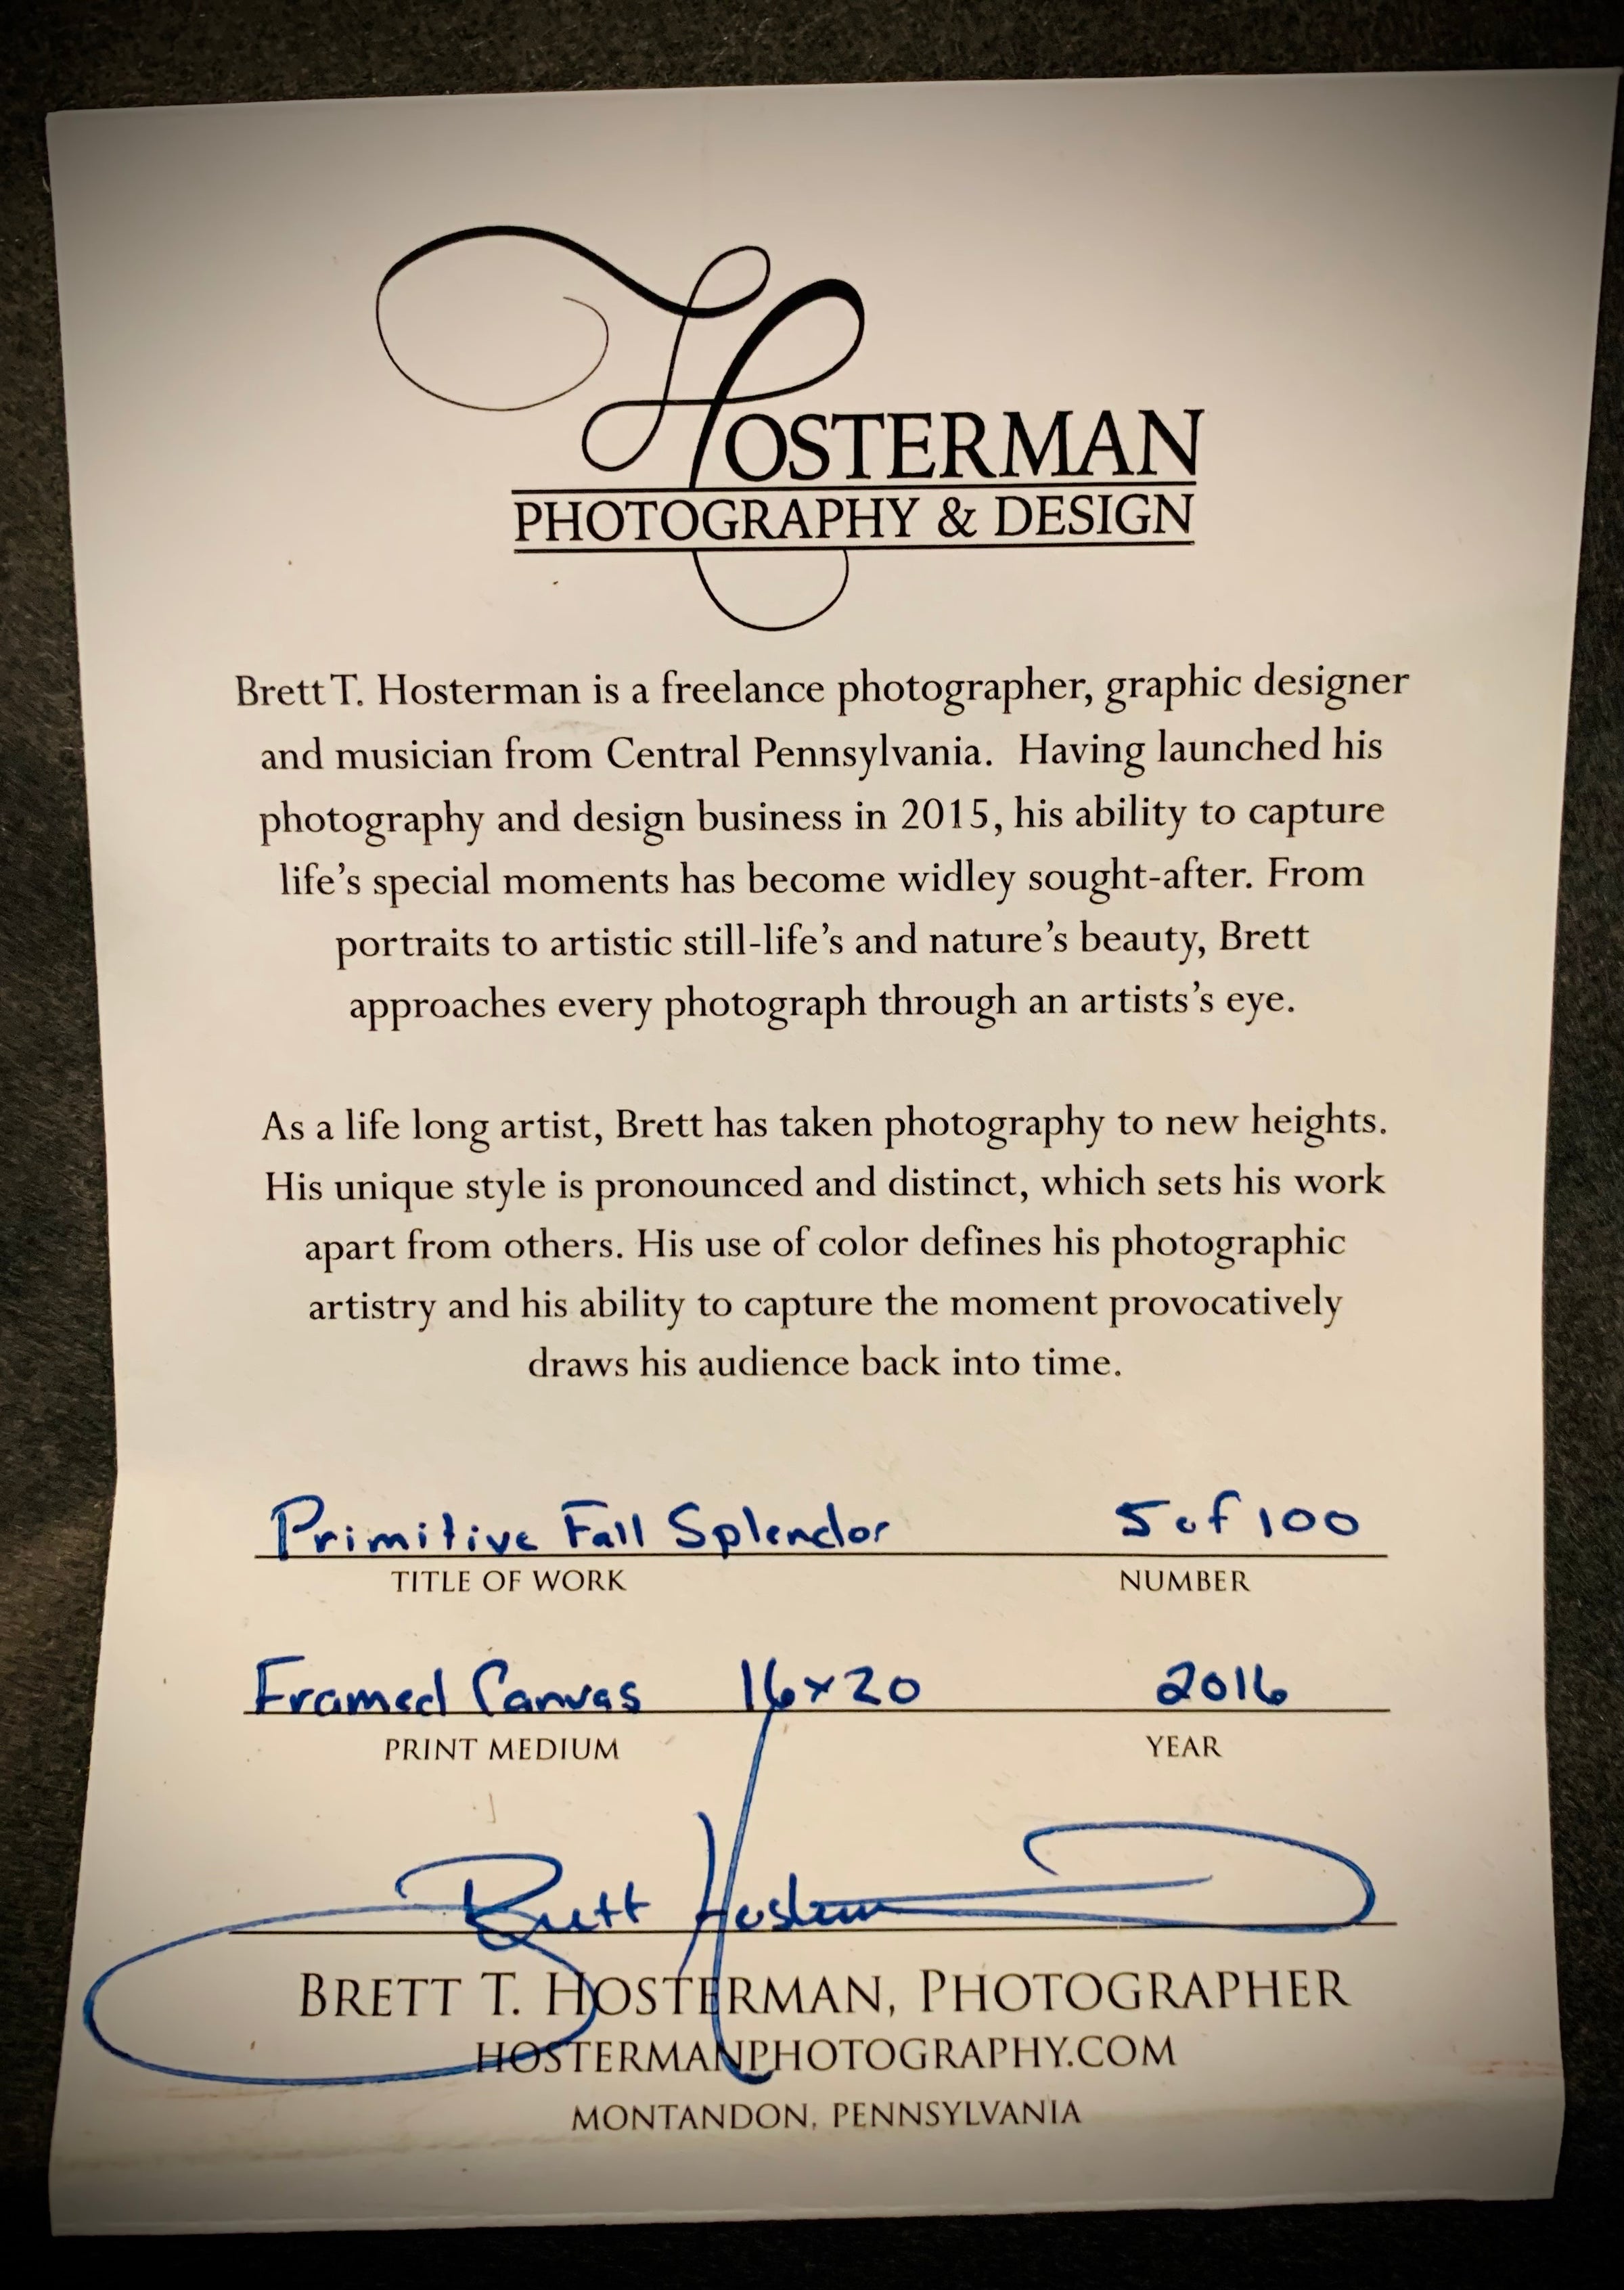 HOSTERMAN
PHOTOGRAPHY & DESIGN
Brett T. Hosterman is a freelance photographer, graphic designer
and musician from Central Pennsylvania. Having launched his
photography and design business in 2015, his ability to capture
life's special moments has become widley sought-after. From
portraits to artistic still-life's and nature's beauty, Brett
approaches every photograph through an artists's eye.
As a life long artist, Brett has taken photography to new heights.
His unique style is pronounced and distinct, which sets his work
apart from others. His use of color defines his photographic
artistry and his ability to capture the moment provocatively
draws his audience back into time.
Primitive Fall Splendor 5 of 100
TITLE OF WORK NUMBER
Framed Canvas 16x20 2016
PRINT MEDIUM YEAR
Brett Hosterman
BRETT T. HOSTERMAN, PHOTOGRAPHER
HOSTERMANPHOTOGRAPHY.COM
MONTANDON, PENNSYLVANIA